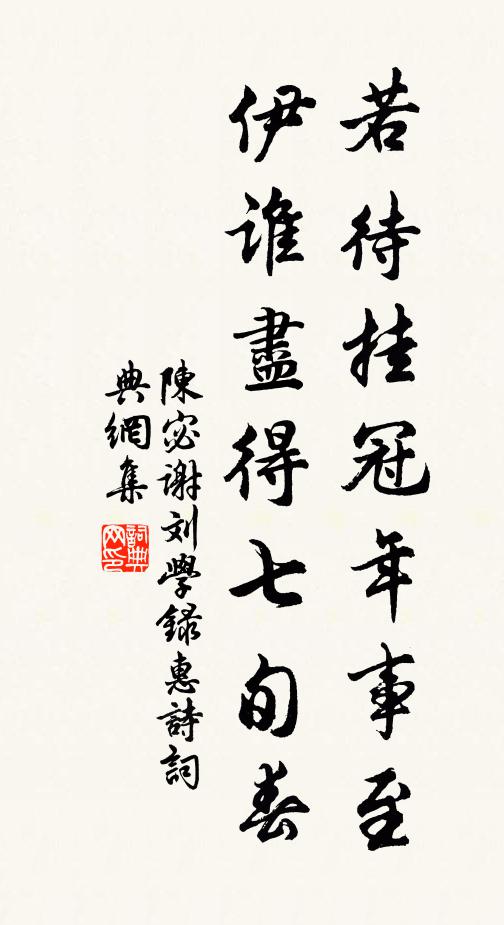 若待挂冠年事至
伊谁盡得七旬春
陳宓谢刘學録惠詩詞
典網集
詞典网印